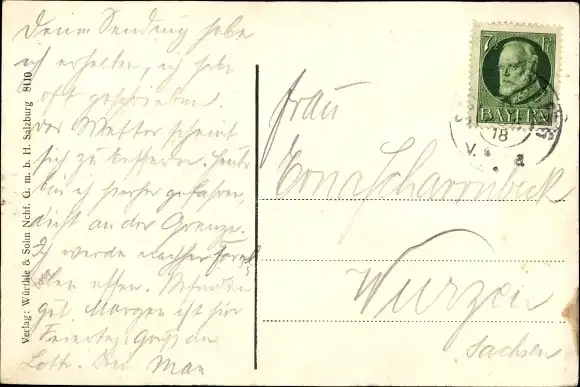 Deine Sendung habe
ich erhalten, ich habe
oft geschrieben.
Das Wetter scheint
sich zu bessern. Heute
bin ich hierher gefahren,
dicht an der Grenze.
Ich werde nachher
essen. Befinden
gut. Morgen ist hier
Feiertag. Gruss an
Lotte.
Frau
Erna Scharronbeck
Wurzen
Sachsen
7½ Pf
BAYERN
18
V.
a
Verlag: Würthle & Sohn Nchf. G. m. b. H. Salzburg 8110